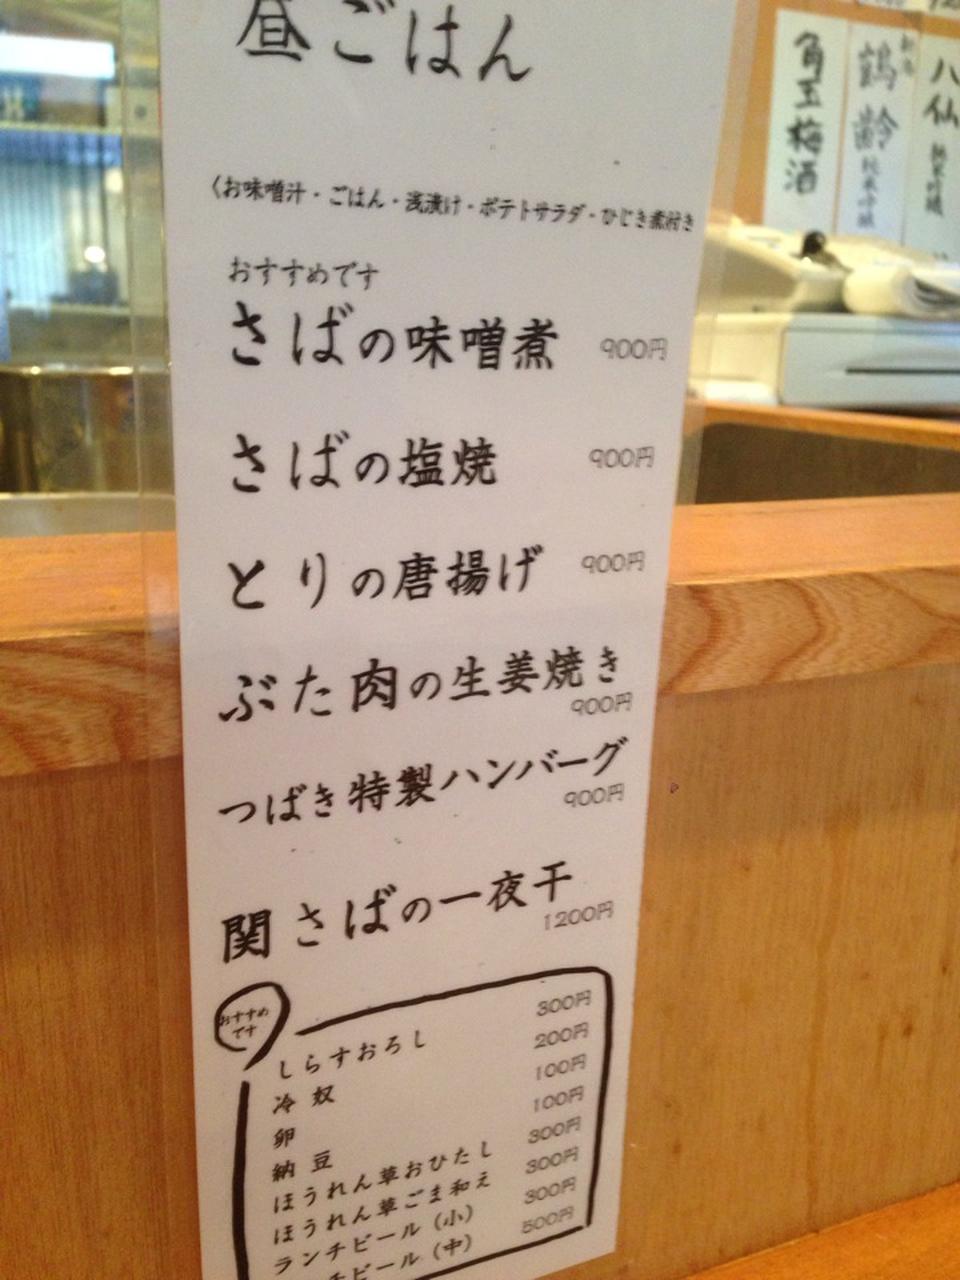 昼ごはん
〈お味噌汁・ごはん・浅漬け・ポテトサラダ・ひじき煮付き
おすすめです
さばの味噌煮 900円
さばの塩焼 900円
とりの唐揚げ 900円
ぶた肉の生姜焼き
900円
つばき特製ハンバーグ
900円
関さばの一夜干
1200円
おすすめ
です
しらすおろし 300円
冷奴 200円
卵 100円
納豆 100円
ほうれん草おひたし 300円
ほうれん草ごま和え 300円
ランチビール(小) 300円
チビール(中) 500円
角玉梅酒
鶴齢
純米吟醸
八仙
純米吟醸